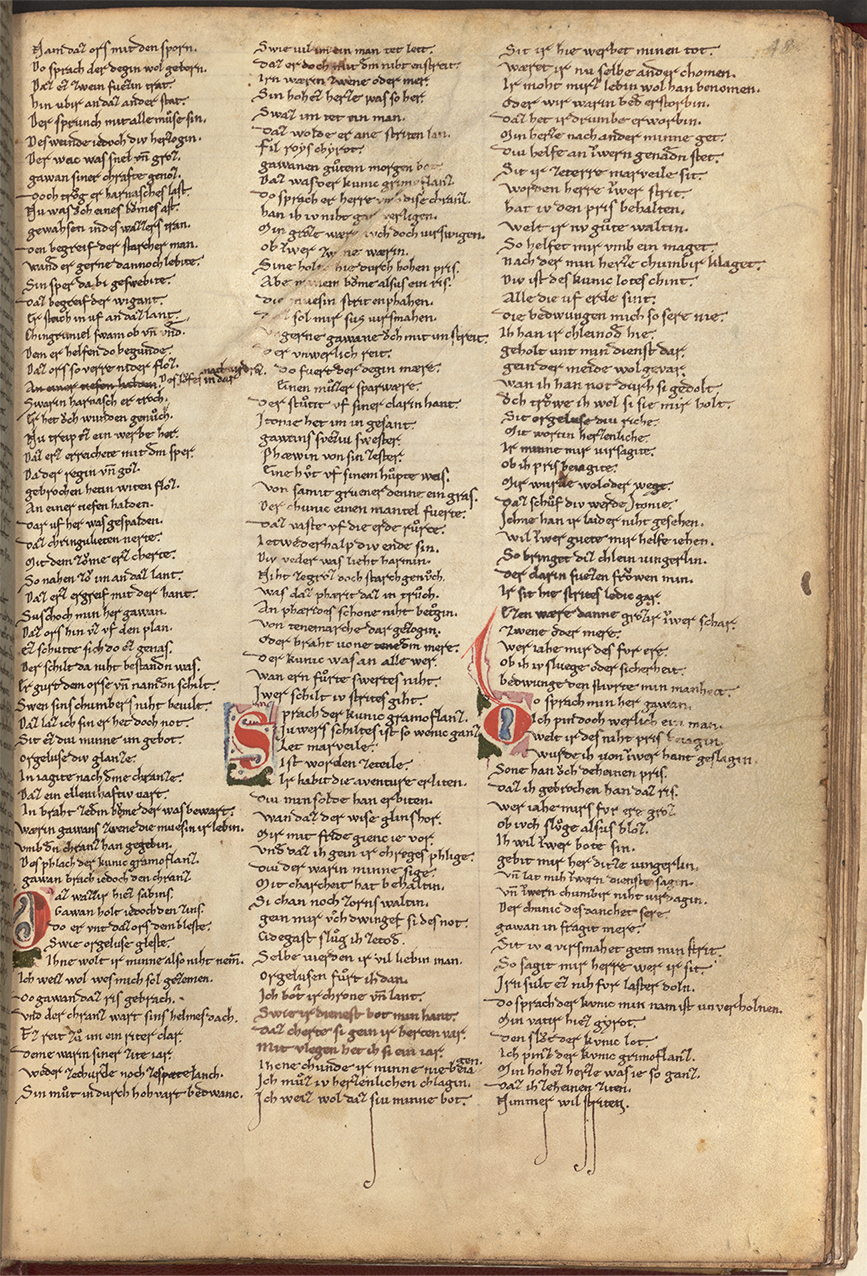 Nam daz ors mit den sporn.
Do sprach der degin wol geborn.
Daz ez zwein fuezin trat.
hin ubir an daz ander stat.
Der sprunch mit alle muose sin.
Des weinde iedoch div herzogin.
Der wac was snel vñ groz.
gawan siner chrafte genoz.
Doch troͮg er harnasches last
Nu was oͮch eines boͮmes ast.
gewahsen in des wazzers tran.
den begreif der starcher man.
wand er gerne dannoch lebite.
Sin sper da bi geswebite.
Daz begreif der wigant.
Er steich in uf an daz lant.
Gringuliet swam ob vñ vnd.
Dem er helfen do begunde.
Daz ors so verre nider floz.
Des lofes in dar nach virdroz.
Swarin harnasch er troch.
Er het oͮch wunden genuͦch.
Nu treip ez ein werbe her.
Daz erz erreichte mit dem sper.
Da der regin vñ goz.
gebrochen hetin witen floz.
An einer tiefen halden.
Daz uf her was gespalden.
Daz chringulieten nerte.
Mit dem zoͮme erz cherte.
So nahen zoͮ im an daz lant.
Daz erz ergreif mit der hant.
Sus zoch min her gawan.
Daz ors hin uz vf den plan.
Ez schutte sich do ez genas.
Der schilt da niht bestandin was.
Er gurt dem orse vñ nam den schilt.
Swen sins chumbers niht bevilt.
Daz laz ich sin er het doch not.
Sit ez div minne im gebot.
Orgeluse div glanze.
In iagite nach dem chranze.
Daz ein ellenthaftiv vart.
In braht zedem boͮme der was bewart.
wærin gawans zwene die muesin ir lebin.
vmb den chranz han gegebin.
Des phlach der kunic gramoflanz.
gawan brach iedoch den chranz
Daz wazzir hiez sabins.
Gawan holt iedoch den zins.
do er vnt daz ors den bleste.
Swie orgeluse gleste.
Ihne wolt ir minne also niht nem.
Ich weiz wol wes mich sol gezemen.
Do gawan daz ris gebrach.
vnd der chranz wart sins helmes dach.
Ez reit zuͦ im ein riter clar.
Deme warin siner zite iar.
weder zechurze noch zespæte lanch.
Sin muͦt in durch hohvart bedwanc.
Swie uil im ein man tet leit.
Daz er doch mit dem niht enstreit.
Irn wærin zwene oder mer.
Sin hohez herze was so her.
Swaz im tet ein man.
Daz wolde er ane striten lan.
Fil roys chyrot.
gawanen guͦtem morgen bot
Daz was der kunic gramoflanz
Do sprach er herre um dise chranz.
han ih iv niht gar verzigen.
Min groͮz wær noch doch virswigen.
ob iͮwer zwene warin.
Sine holt hie durch hohen pris.
Abe minem boͮme alsus ein ris.
die muesin strit enphahen.
Daz sol mir sus virsmahen.
Vngerne gawane oͮch mit im streit.
Der vnwerlich reit.
Do fuort der degin mære.
Einen muͦzer sparwære.
Der stuͦnt vf siner clarin hant.
Itonie het im in gesant.
gawins sveziu swester.
Phæwin von sin zester.
Eine huͦt vf sinem huͦpte was.
von samit gruener denne ein gras.
Der chunic einen mantel fuorte.
Daz vaste vf die erde ruͦrte.
Ietwederhalp div ende sin.
Div veder was lieht harmin.
Niht ze groz doch starch genuͦch.
was daz phærit daz in truͦch.
An phærdes schone niht betrogin.
von tenemarche dar gezogin.
Oder braht uone tenem mere.
Der kunic was an alle wer.
wan ern fuͦrte swertes niht.
Iwer schilt iv strites giht.
Sprach der kunic gramoflanz.
Iuwers schiltes ist so wenic ganz
Zet marveile.
Ist worden zeteile.
Ir habit die aventure erliten.
Diu man solde han erbiten.
Wan daz der wise glinshor.
Mir mit fride gienc ie vor.
vnd daz ih gein ir chreges phlige.
Diu der warin minne sige.
Mit charcheit hat behaltin.
Si chan noch zorns waltin.
gein mir ych dwinget si des not.
Cidegast sluͦg ih zetod.
Selbe vierden ir vil liebin man.
Orgelusen fuͦrt ih dan.
Ich boͮt ir chrone vñ lant.
Swie ir dienest bot min hant.
Daz cherte si gein ir herzen var.
Mit vlegen het ih si ein iar.
Ihene chunde ir minne nie beiagen.
Ich muͦz iv herzenlichen chlagin.
Ich weiz wol daz siu minne bot.
Sit ir hie werbet minen tot.
wæret ir nu selbe ander chomen.
Ir moht mirz lebin wol han benomen.
Oder wir warin bede erstorbin.
Daz het ir drumbe erworbin.
Min herze nach ander minne get.
Diu helfe an iwern genaden stet.
Sit ir zeterre marveile sit.
worden herre iwer strit.
hat iv den pris behalten.
Welt ir nv guͦte waltin.
So helfet mir vmb ein maget.
nach der min herze chumbir klaget.
Div ist des kunic lotes chint.
Alle die vf erde sint.
die bedwungen mich so sere nie.
Ih han ir chleinod hie.
geholt unt min dienst dar.
gein der meide wol gevar.
wan ih han not durh si gedolt
oͮch troͮwe ih wol si sie mir holt.
Sit orgeluse diu riche.
Mit wortin herzenliche.
Ir minne mir virsagite.
ob ih pris beiagite.
Mir wurde wol oder wege.
Daz schuͦf div werde Itonie.
Ichne han ir laider niht gesehen.
wil iwer guete mir helfe iehen.
So bringet diz chlein vingerlin.
der clarin suezen froͮwen min.
Ir sit hie strites ledic gar.
Ezen wære danne grozir iwer schar.
Zwene oder mere.
Wer iahe mir des fur ere.
Ob ih iv sluege oder sicherheit.
bedwunge den stwrte min manheit.
Do sprach min her gawan.
Ich pin doch werlich ein man.
welt ir des niht pris beiagin.
wurde ih von iwer hant geslagin.
Sone han oͮch deheinen pris.
Daz ih gebrochen han daz ris.
wer iahe mirs fvr ere groz
ob ivch sluͦge alsus bloz.
Ih wil iwer bote sin.
gebit mir her ditze vingerlin.
vñ lat mih iwern dienste sagen.
vñ iwern chumbir niht virdagin.
Der chunic des danchet sere
gawan in fragit mere.
Sit iv a virsmahet gein min strit.
So sagit mir herre wer ir sit
Irn sult ez nih fvr laster doln.
Do sprach der kvnic min nam ist unverholnen.
Min vatir hiez gyrot.
den sluͦc der kvnic lot.
Ich pinz der kvnic grimoflanz.
Min hohez herze was ie so ganz.
Daz ih ze heinen ziten.
Nimmer wil striten.